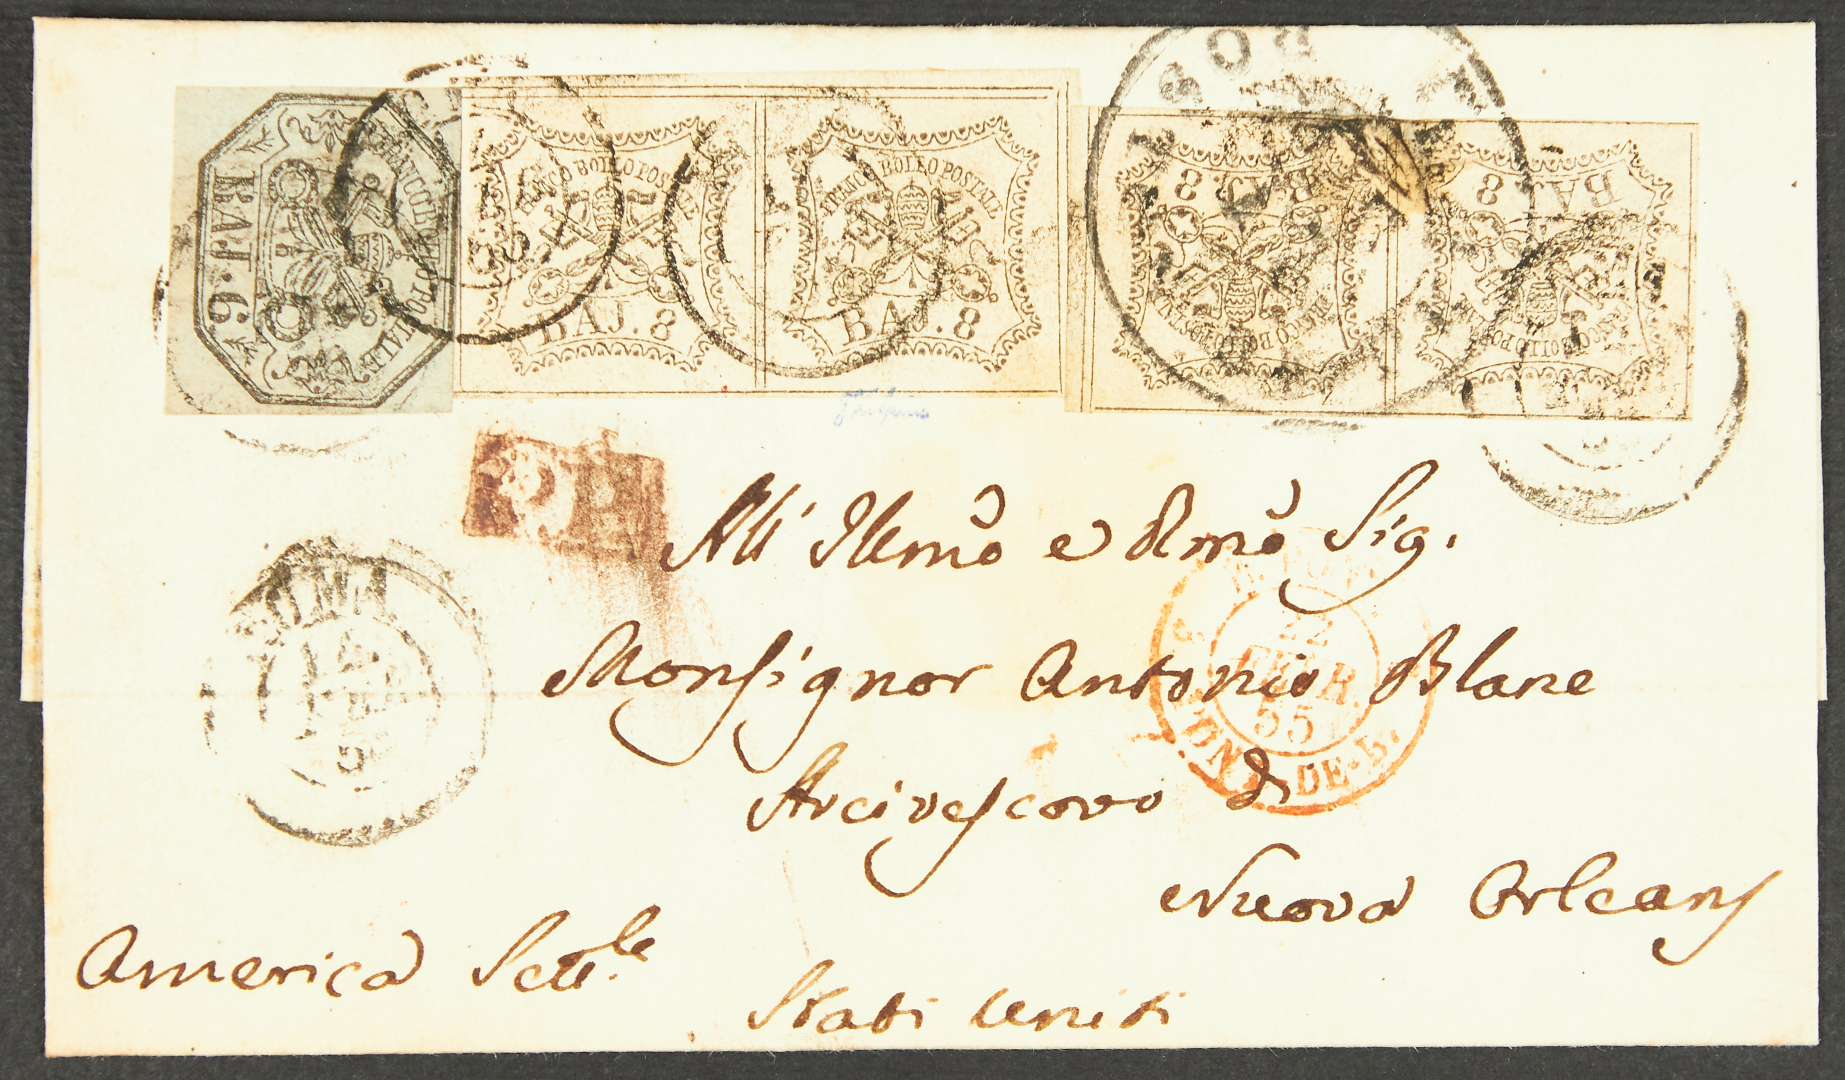 FRANCO BOLLO POSTALE
BAJ. 6
FRANCO BOLLO POSTALE
BAJ. 8
FRANCO BOLLO POSTALE
BAJ. 8
FRANCO BOLLO POSTALE
BAJ. 8
FRANCO BOLLO POSTALE
BAJ. 8
ROMA
22
FEVR.
55
PONT-DE-B.
All' Illmo e Rmo Sig.
Monsignor Antonio Blanc
Arcivescovo di
Nuova Orleans
America Sett.le
Stati Uniti